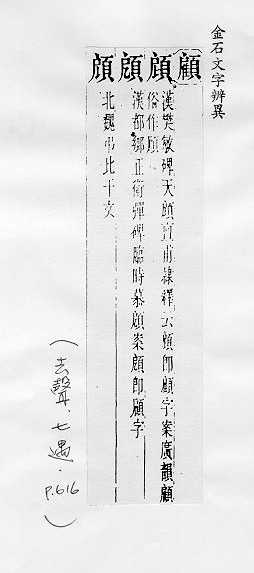 金石文字辨異
顧
頋
漢樊敏碑天頋宣甫隸釋云頋即顧字案廣韻顧
俗作頋
漢都鄉正衛彈碑臨時慕顧案顧即顧字
北魏弔比干文
(去聲.七遇.P.616)